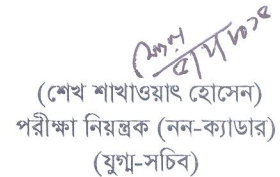 (শেখ শাখাওয়াৎ হোসেন)
পরীক্ষা নিয়ন্ত্রক (নন-ক্যাডার)
(যুগ্ম-সচিব)